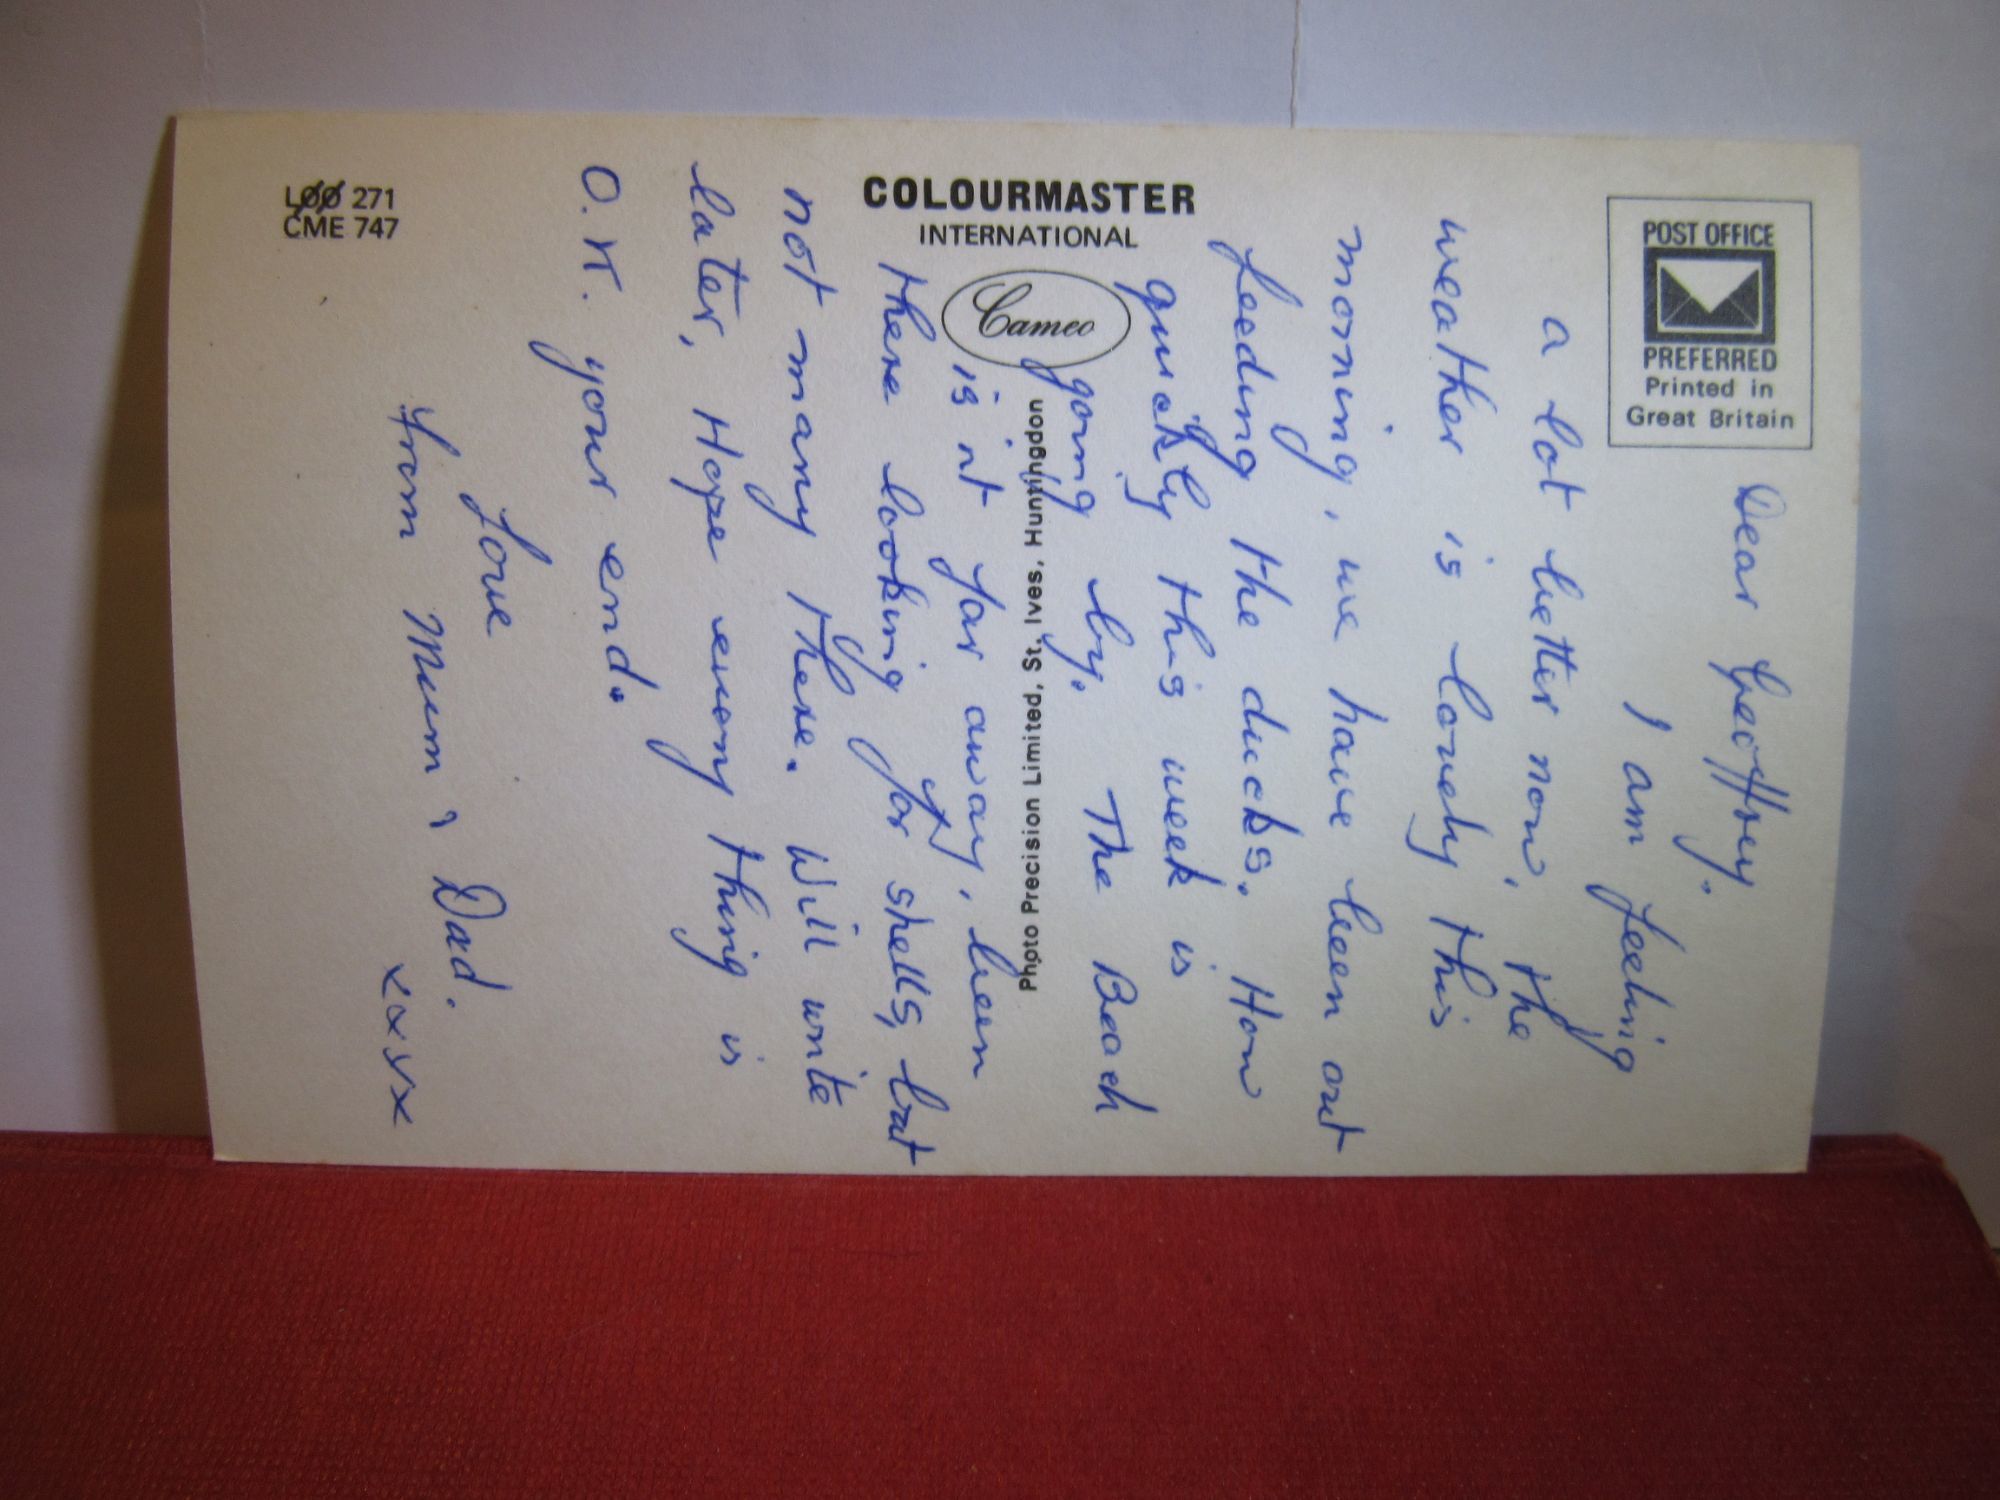 Dear Geoffrey.
I am feeling
a lot better now, the
weather is lovely this
morning, we have been out
feeding the ducks. How
quickly this week is
going by. The Beach
is nt far away, been
there looking for shells, but
not many there. Will write
later, Hope every thing is
O.K. your end.
Love
from Mum & Dad.
xxxx
LØØ 271
CME 747
COLOURMASTER
INTERNATIONAL
Cameo
Photo Precision Limited, St. Ives, Huntingdon
POST OFFICE
PREFERRED
Printed in
Great Britain